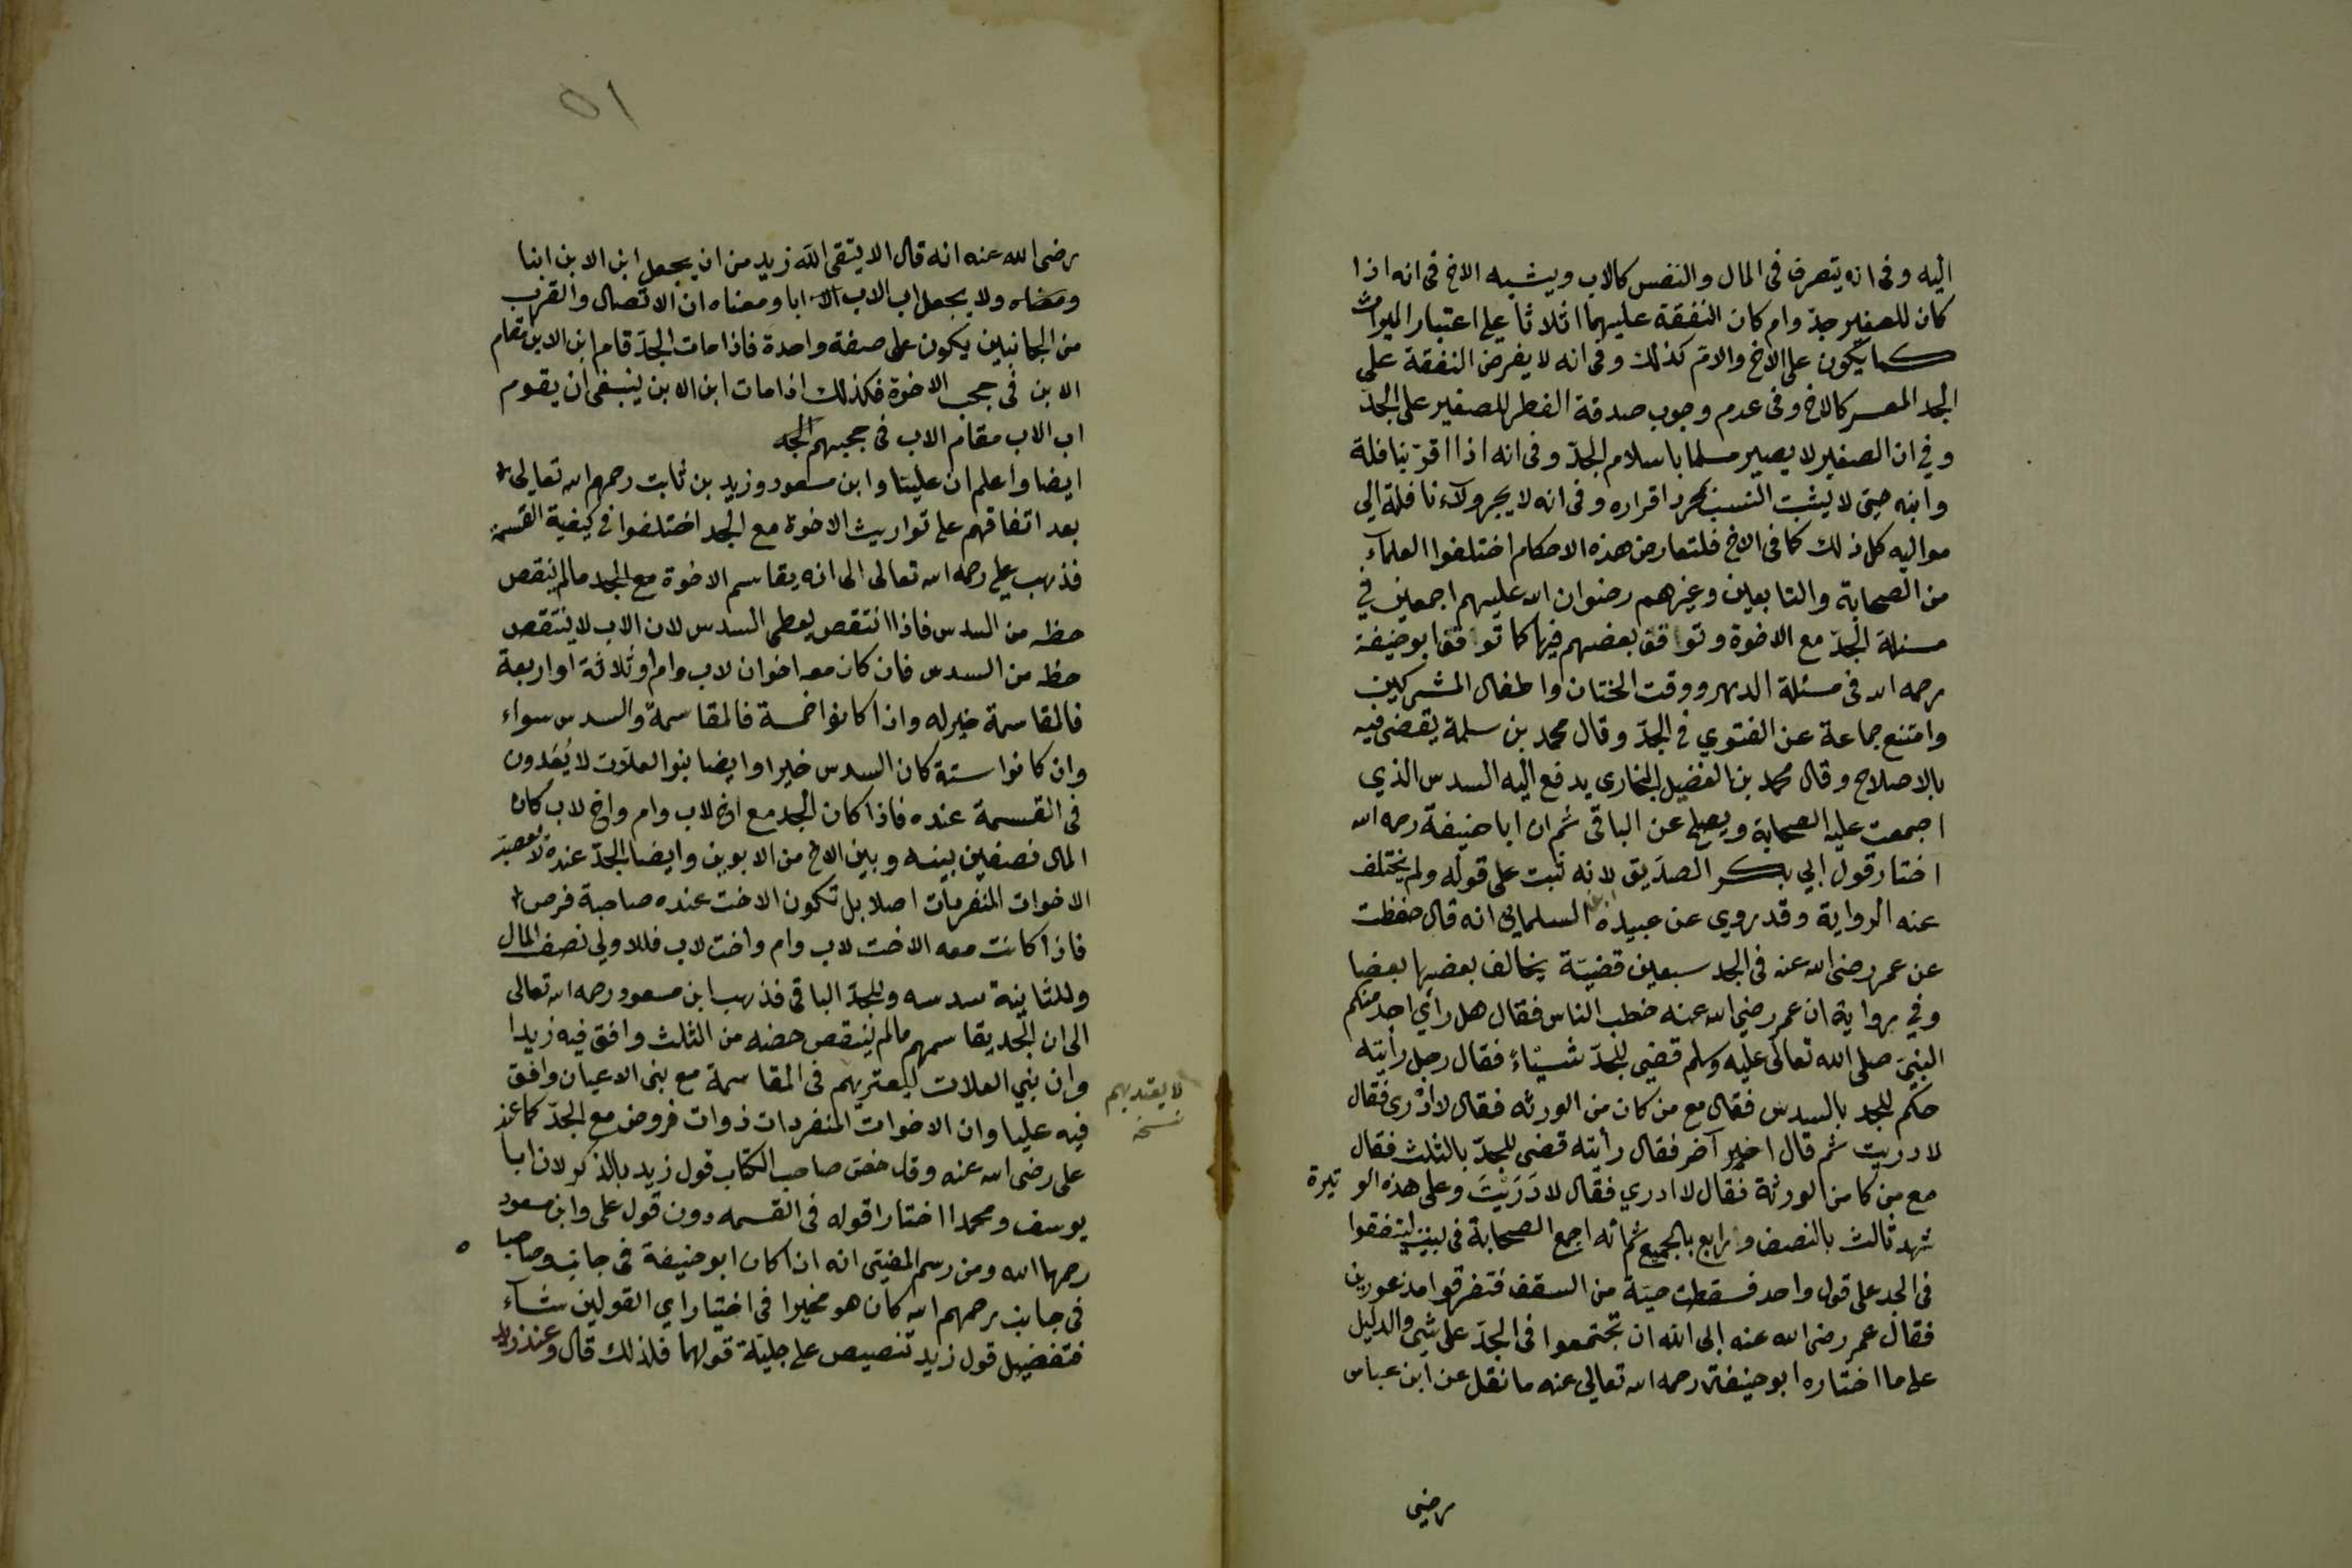 اليه وفى انه يتصرف فى المال والنفس كالاب ويشبه الاخ فى انه اذا
كان للصغير جدّ وام كان النفقة عليهما اثلاثا على اعتبار الميراث
كما يكون على الاخ والامّ كذلك وفى انه لا يفرض النفقة على
الجد المعسر كالاخ وفى عدم وجوب صدقة الفطر للصغير على الجدّ
وفي ان الصغير لا يصير مسلما باسلام الجدّ وفى انه اذا اقرّ بنافلة
وابنه حيّ لا يثبت النسب بمجرد اقراره وفى انه لا يجر ولاء نافلة الي
مواليه كل ذلك كما فى الاخ فلتعارض هذه الاحكام اختلفوا العلمآء
من الصحابة والتابعين وغيرهم رضوان الله عليهم اجمعين في
مسئلة الجدّ مع الاخوة وتواقف بعضهم فيها كما تواقف ابو حنيفة
رحمه الله فى مسئلة الدهر ووقت الختان واطفال المشركين
وامتنع جماعة عن الفتوي فى الجدّ وقال محمد بن سلمة يقضى فيه
بالاصلاح وقال محمد بن الفضيل البخارى يدفع اليه السدس الذي
اجمعت عليه الصحابة ويصلح عن الباقى ثم ان ابا حنيفة رحمه الله
اختار قول ابي بكر الصدّيق لانه ثبت على قوله ولم يختلف
عنه الرواية وقد روي عن عبيدة السلمانى انه قال حفظت
عن عمر رضى الله عنه فى الجد سبعين قضيّة يخالف بعضها بعضا
وفي رواية ان عمر رضي الله عنه خطب الناس فقال هل رأي احد منكم
النبيّ صلى الله تعالى عليه وسلم قضي للجدّ شيئاً فقال رجل رأيته
حكم للجد بالسدس فقال مع من كان من الورثه فقال لا ادرى فقال
لا دريت ثم قال اخبر آخر فقال رأيته قضى للجدّ بالثلث فقال
مع من كا من الورثة فقال لا ادري فقال لا دَرَيْتَ وعلى هذه الوتيرة
شهد ثالث بالنصف ورابع بالجميع ثم انه اجمع الصحابة فى بيت ليتفقوا
فى الجد على قول واحد فسقطت حيّة من السقف فتفرقوا مذعورين
فقال عمر رضى الله عنه ابى الله ان تجتمعوا فى الجدّ على شئ والدليل
على ما اختاره ابو حنيفة رحمه الله تعالي عنه ما نقل عن ابن عباس
رضى
٥١
رضى الله عنه انه قال الا يتّقى الله زيد من ان يجعل ابن الابن ابنا
ومعناه ولا يجعل اب الاب ابا ومعناه ان الاتصال والقرب
من الجانبين يكون على صفة واحدة فاذا مات الجدّ قام ابن الابن مقام
الابن فى حجب الاخوة فكذلك اذا مات ابن الابن ينبغى ان يقوم
اب الاب مقام الاب فى حجبهم الجد
ايضا واعلم ان عليّا وابن مسعود وزيد بن ثابت رحمهم الله تعالى
بعد اتفاقهم على تواريث الاخوة مع الجد اختلفوا في كيفية القسمة
فذهب علي رحمه الله تعالى الى انه يقاسم الاخوة مع الجد مالم ينتقص
حظه من السدس فاذا انتقص يعطى السدس لان الاب لا ينتقص
حظه من السدس فان كان معه اخوان لاب وام او ثلاثة او اربعة
فالمقاسمة خير له واذا كانوا خمسة فالمقاسمة والسدس سواء
وان كانوا ستة كان السدس خيرا وايضا بنوا العلاّت لا يُعَدون
فى القسمة عنده فاذا كان الجد مع اخ لاب وام واخ لاب كان
المال نصفين بينه وبين الاخ من الابوين وايضا الجدّ عنده لا يعصب
الاخوات المنفردات اصلا بل تكون الاخت عنده صاحبة فرض
فاذا كانت معه الاخت لاب وام واخت لاب فللاولي نصف المال
وللثانية سدسه وللجدّ الباقى فذهب ابن مسعود رحمه الله تعالى
الى ان الجد يقاسمهم مالم ينتقص حضه من الثلث وافق فيه زيدا
وان بني العلات ليعتريهم فى المقاسمة مع بنى الاعيان وافق
لا يعتد بهم
نسخه
فيه عليا وان الاخوات المنفردات ذوات فروض مع الجدّ كما عند
على رضى الله عنه وقد خصّ صاحب الكتاب قول زيد بالذكر لان ابا
يوسف ومحمدا اختارا قوله فى القسمه دون قول على وابن مسعود
رحمهما الله ومن رسم المفتى انه اذا كان ابو حنيفة فى جانب وصاحبا
ه
فى جانب رحمهم الله كان هو مخيرا فى اختيار اي القولين شآء
فتفضيل قول زيد تنصيص على جليّة قولهما فلذلك قال وعند زيد